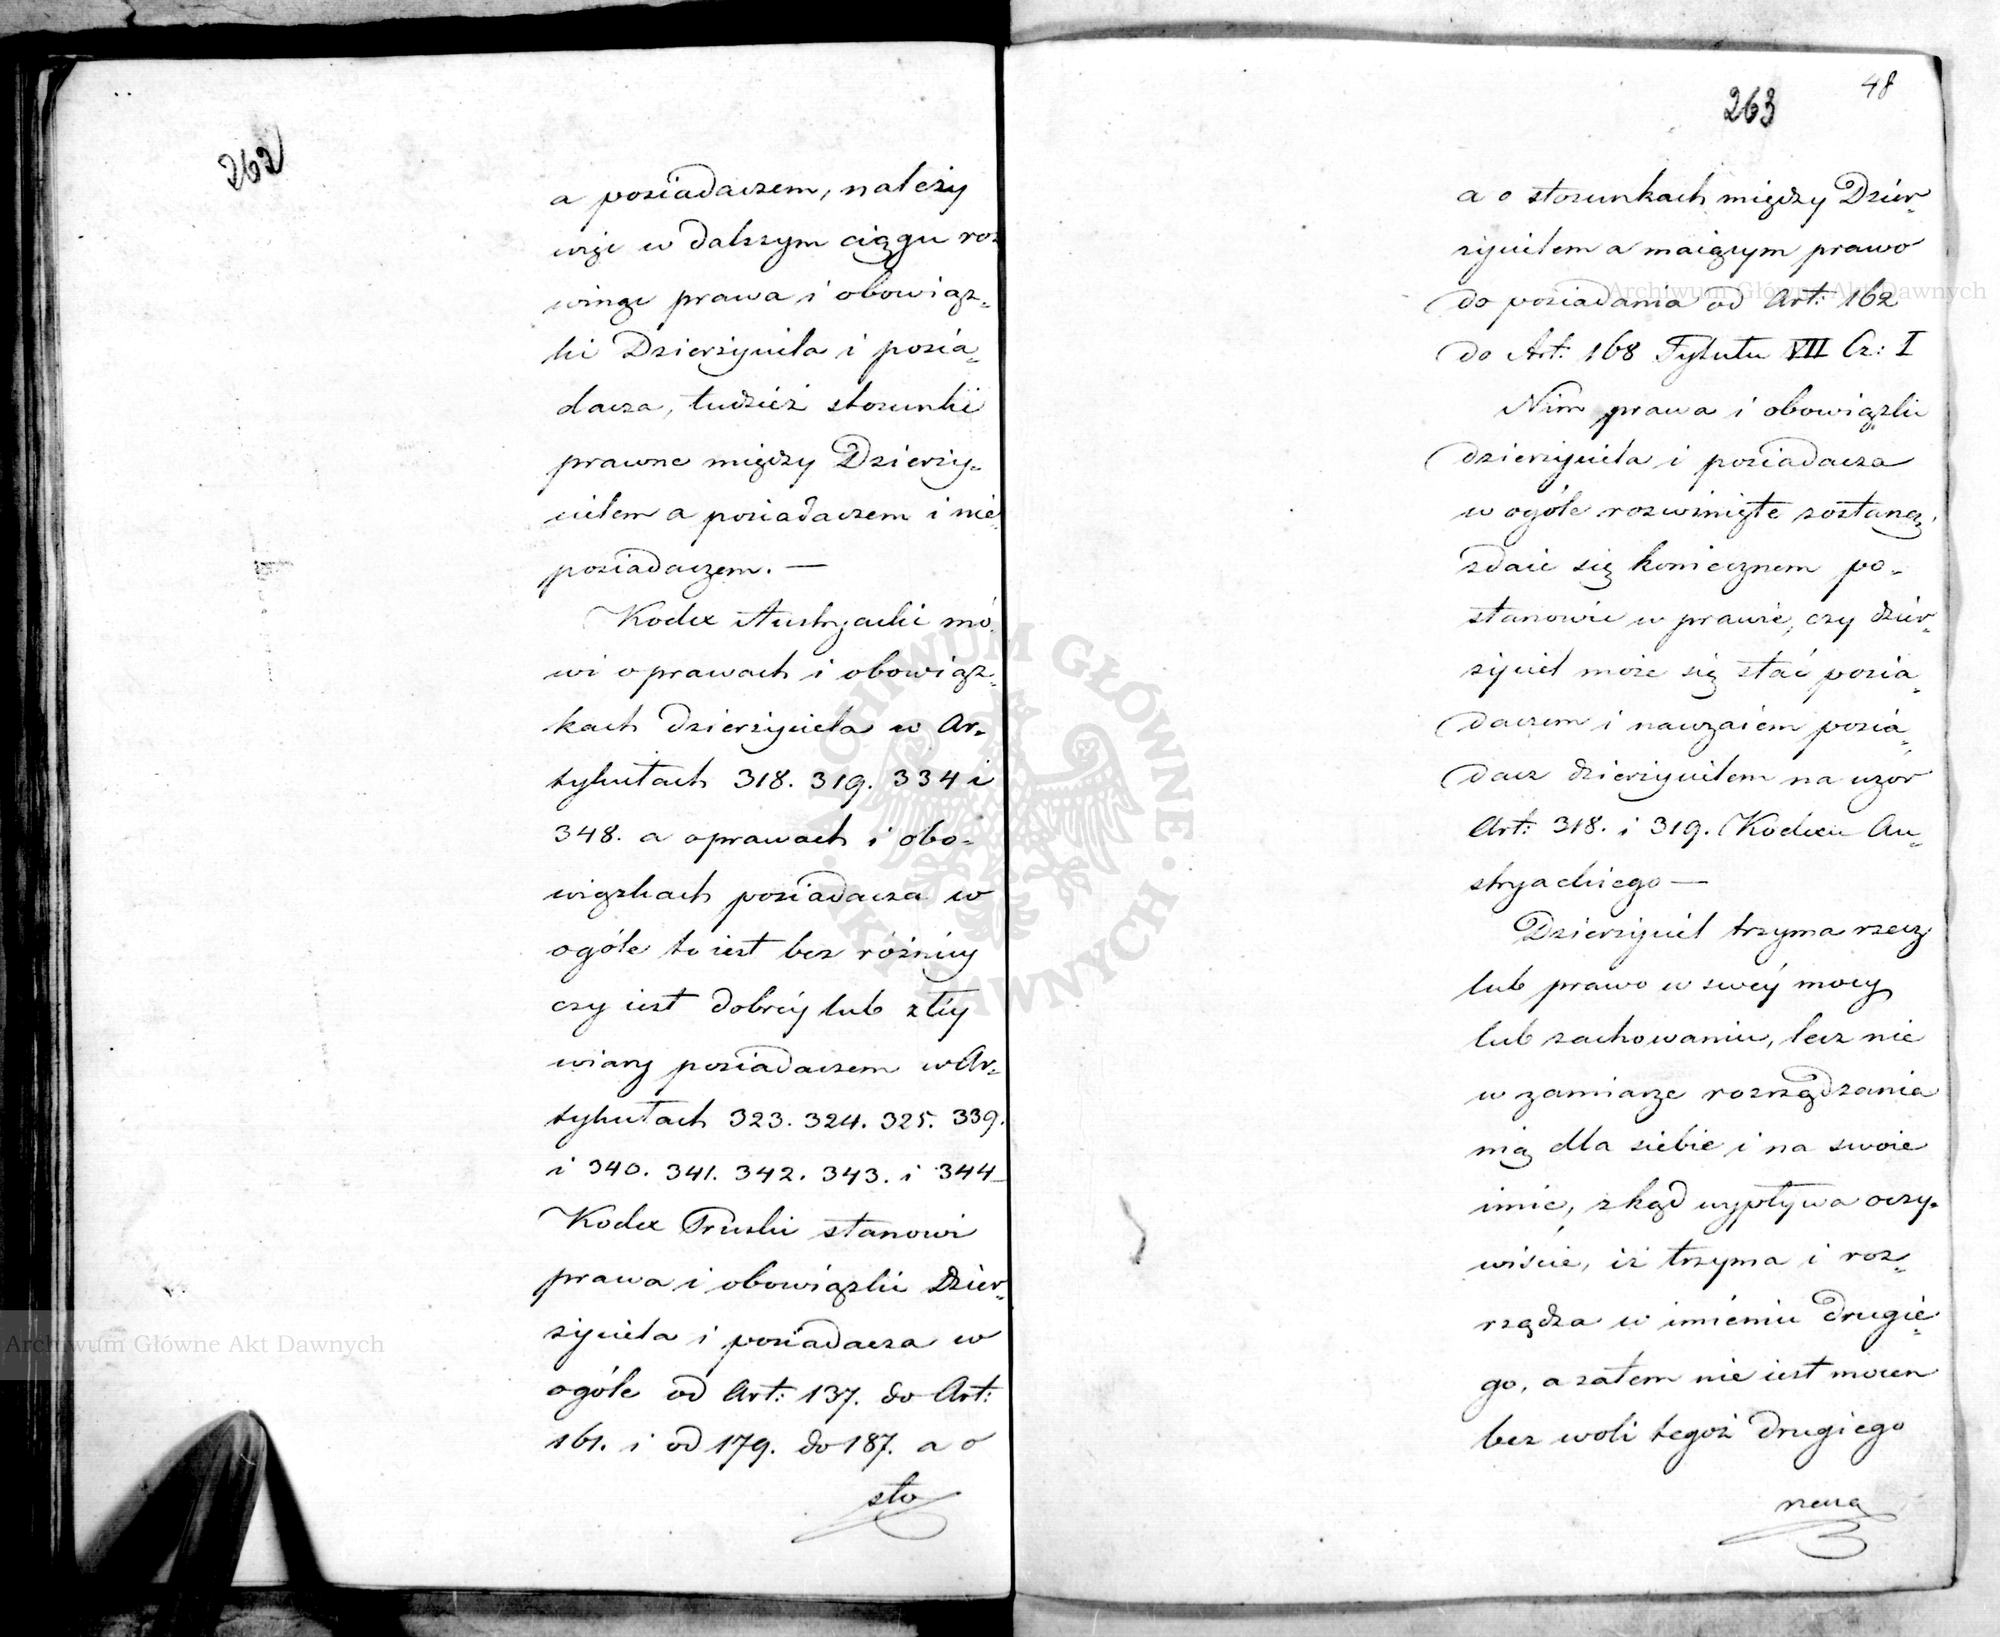 262
a posiadaczem, należy
więc w dalszym ciągu roz
winąć prawa i obowiąz„
ki Dzierżyciela i posia„
dacza, tudzież stosunki
prawne między Dzierży„
cielem a posiadaczem i nie
posiadaczem. —
Kodex Austryacki mó„
wi o prawach i obowiąz„
kach dzierżyciela w Ar„
tykułach 318. 319. 334 i
348. a o prawach i obo„
wiązkach posiadacza w
ogóle to iest bez różnicy
czy iest dobréy lub złéy
wiary posiadaczem w Ar„
tykułach 323. 324. 325. 339.
i 340. 341. 342. 343. i 344
Kodex Pruski stanowi
prawa i obowiązki Dzier„
życiela i posiadacza w
ogóle od Art: 137. do Art:
161. i od 179. do 187. a o
sto
48
263
a o stosunkach między Dzier„
życielem a maiącym prawo
do posiadania od Art: 162
do Art: 168 Tytułu VII Cz: I
Nim prawa i obowiązki
dzierżyciela i posiadacza
w ogóle rozwinięte zostaną,
zdaie się koniecznem po„
stanowić w prawie, czy dzier„
życiel może się stać posia„
daczem i nawzaiem posia„
dacz dzierżycielem na wzor
Art: 318. i 319. Kodexu Au„
stryackiego —
Dzierżyciel trzyma rzecz
lub prawo w swéy mocy
lub zachowaniu, lecz nie
w zamiarze rozrządzania
nią dla siebie i na swoie
imie, zkąd wypływa oczy„
wiście, iż trzyma i roz„
rządza w imieniu drugie„
go, a zatem nie iest mocen
bez woli tegoż drugiego
rzeczą
Archiwum Główne Akt Dawnych
Archiwum Główne Akt Dawnych
ARCHIWUM GŁÓWNE AKT DAWNYCH